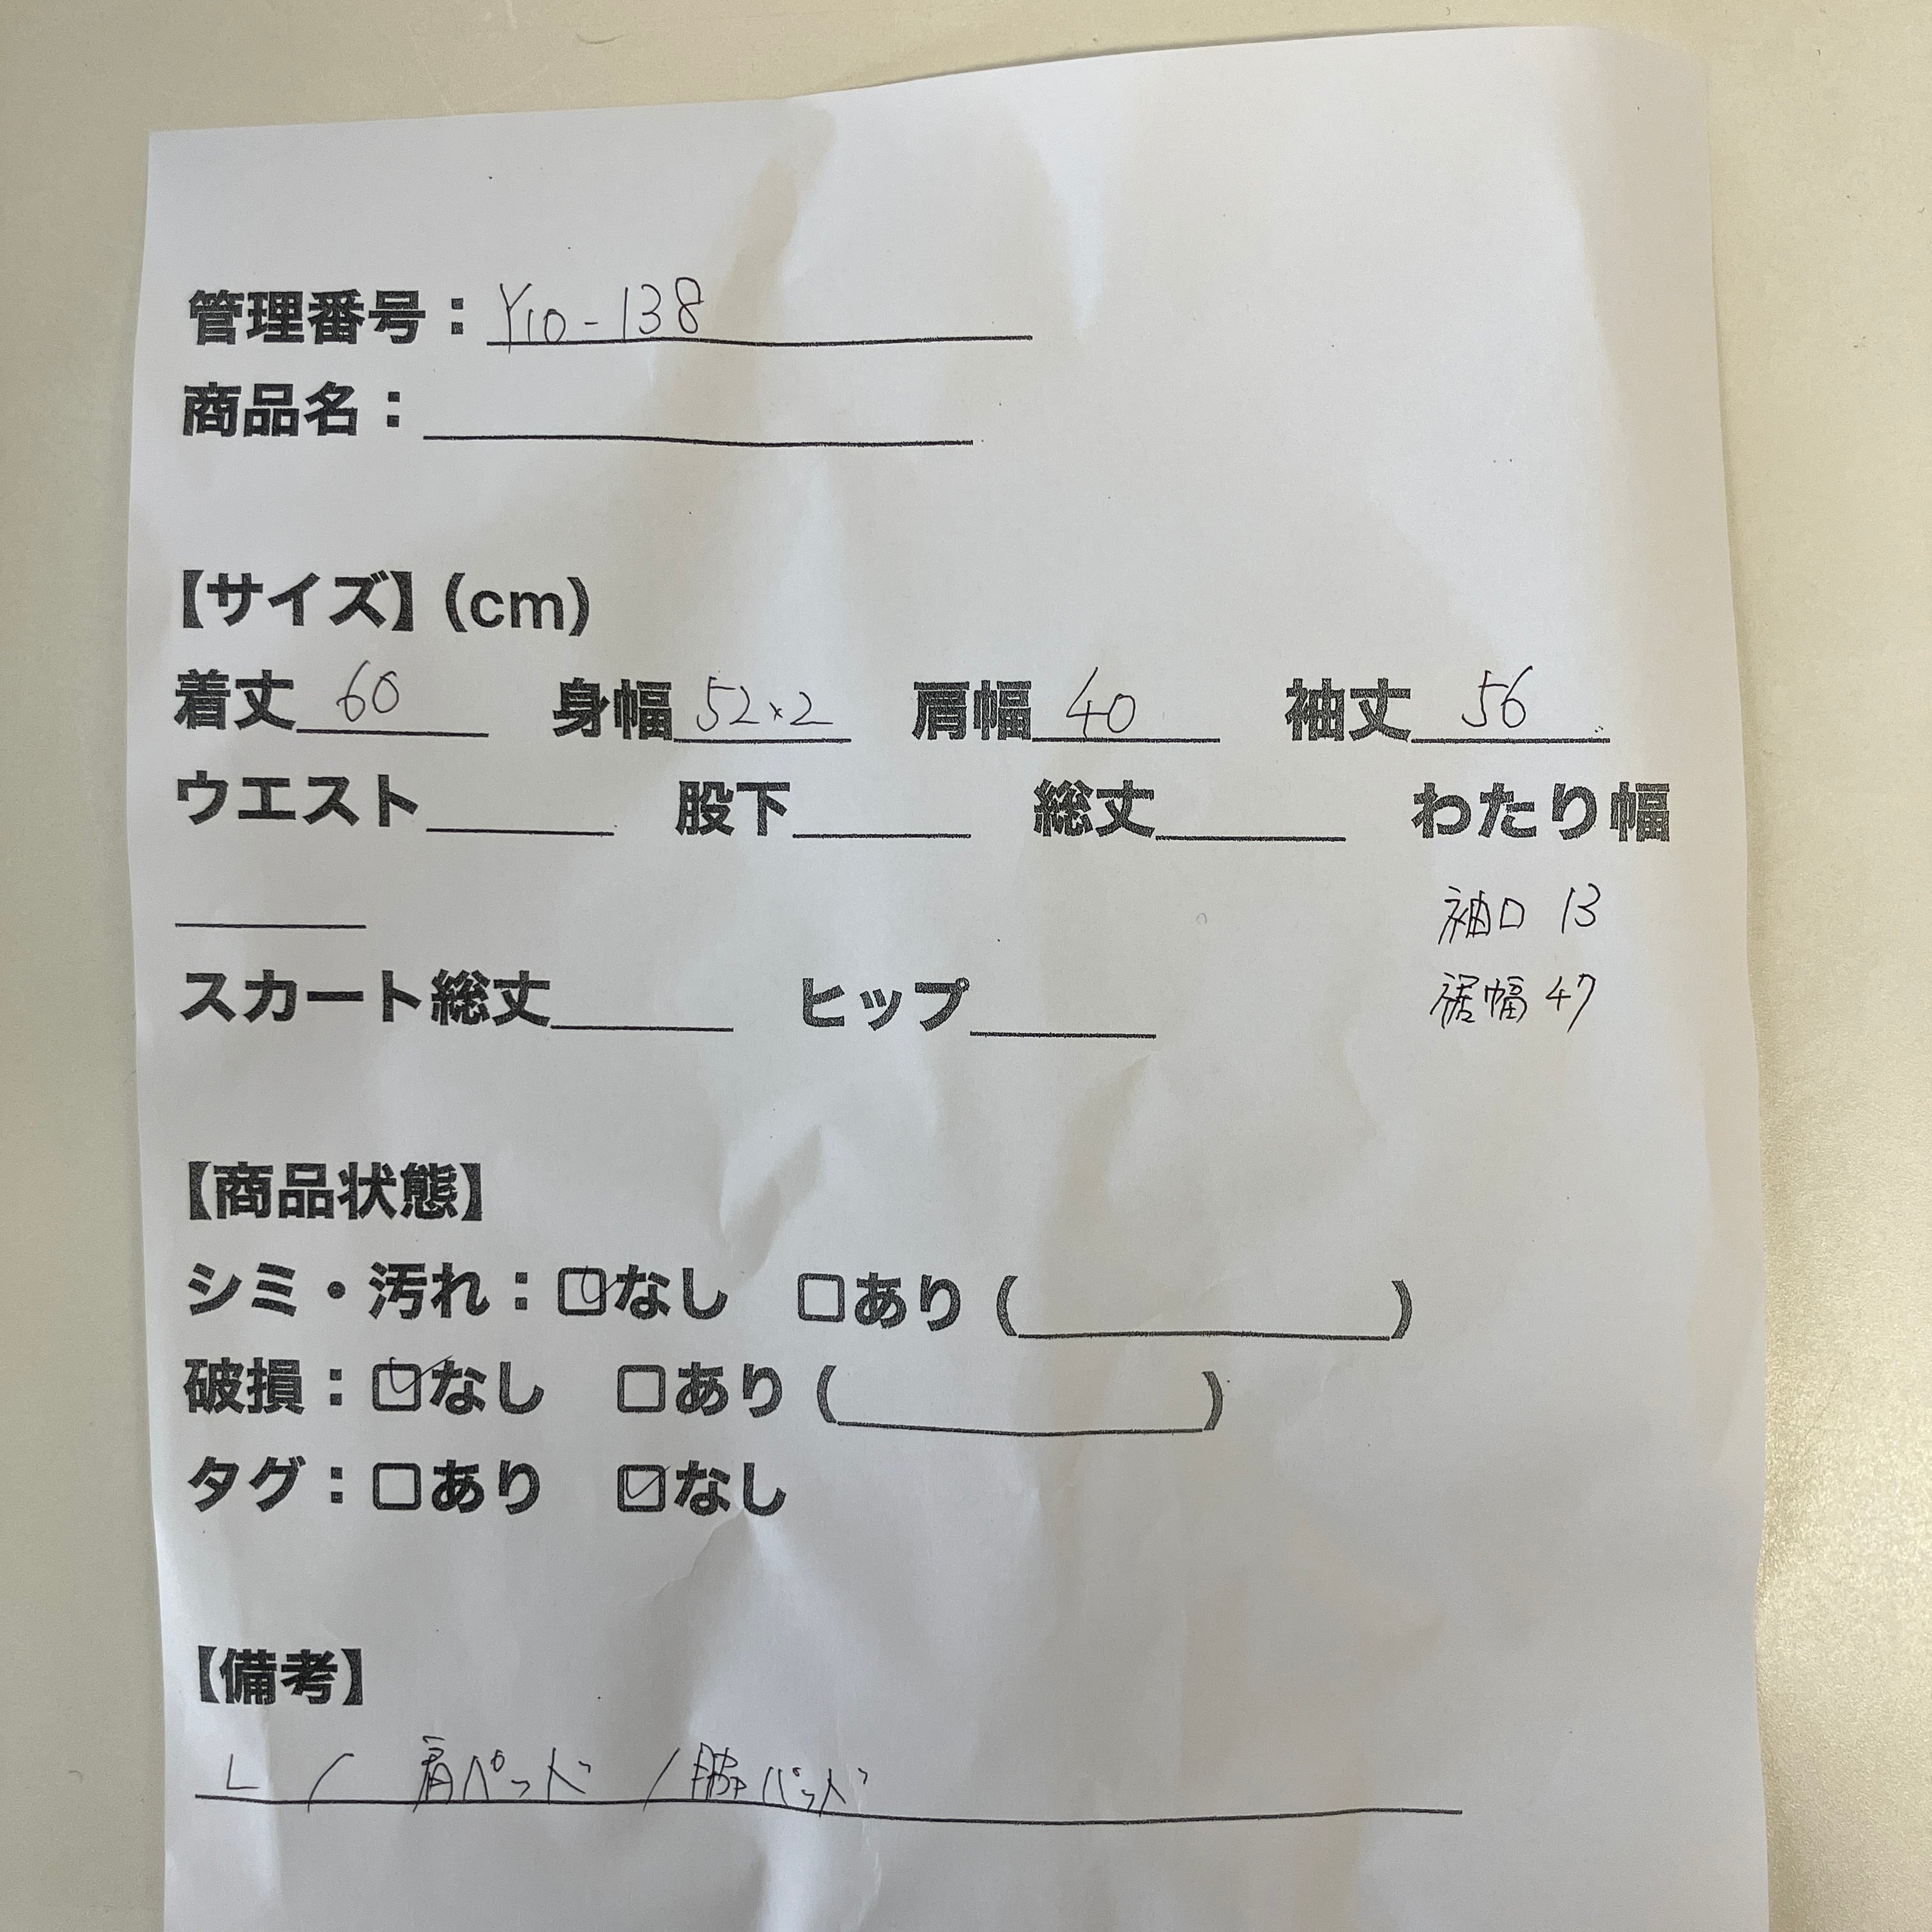 管理番号：Y10-138
商品名：
【サイズ】(cm)
着丈 60 身幅 52×2 肩幅 40 袖丈 56
ウエスト 股下 総丈 わたり幅
袖口 13
裾幅 47
スカート総丈 ヒップ
【商品状態】
シミ・汚れ：☑なし □あり ( )
破損：☑なし □あり ( )
タグ：□あり ☑なし
【備考】
L / 肩パッド / 脇パッド